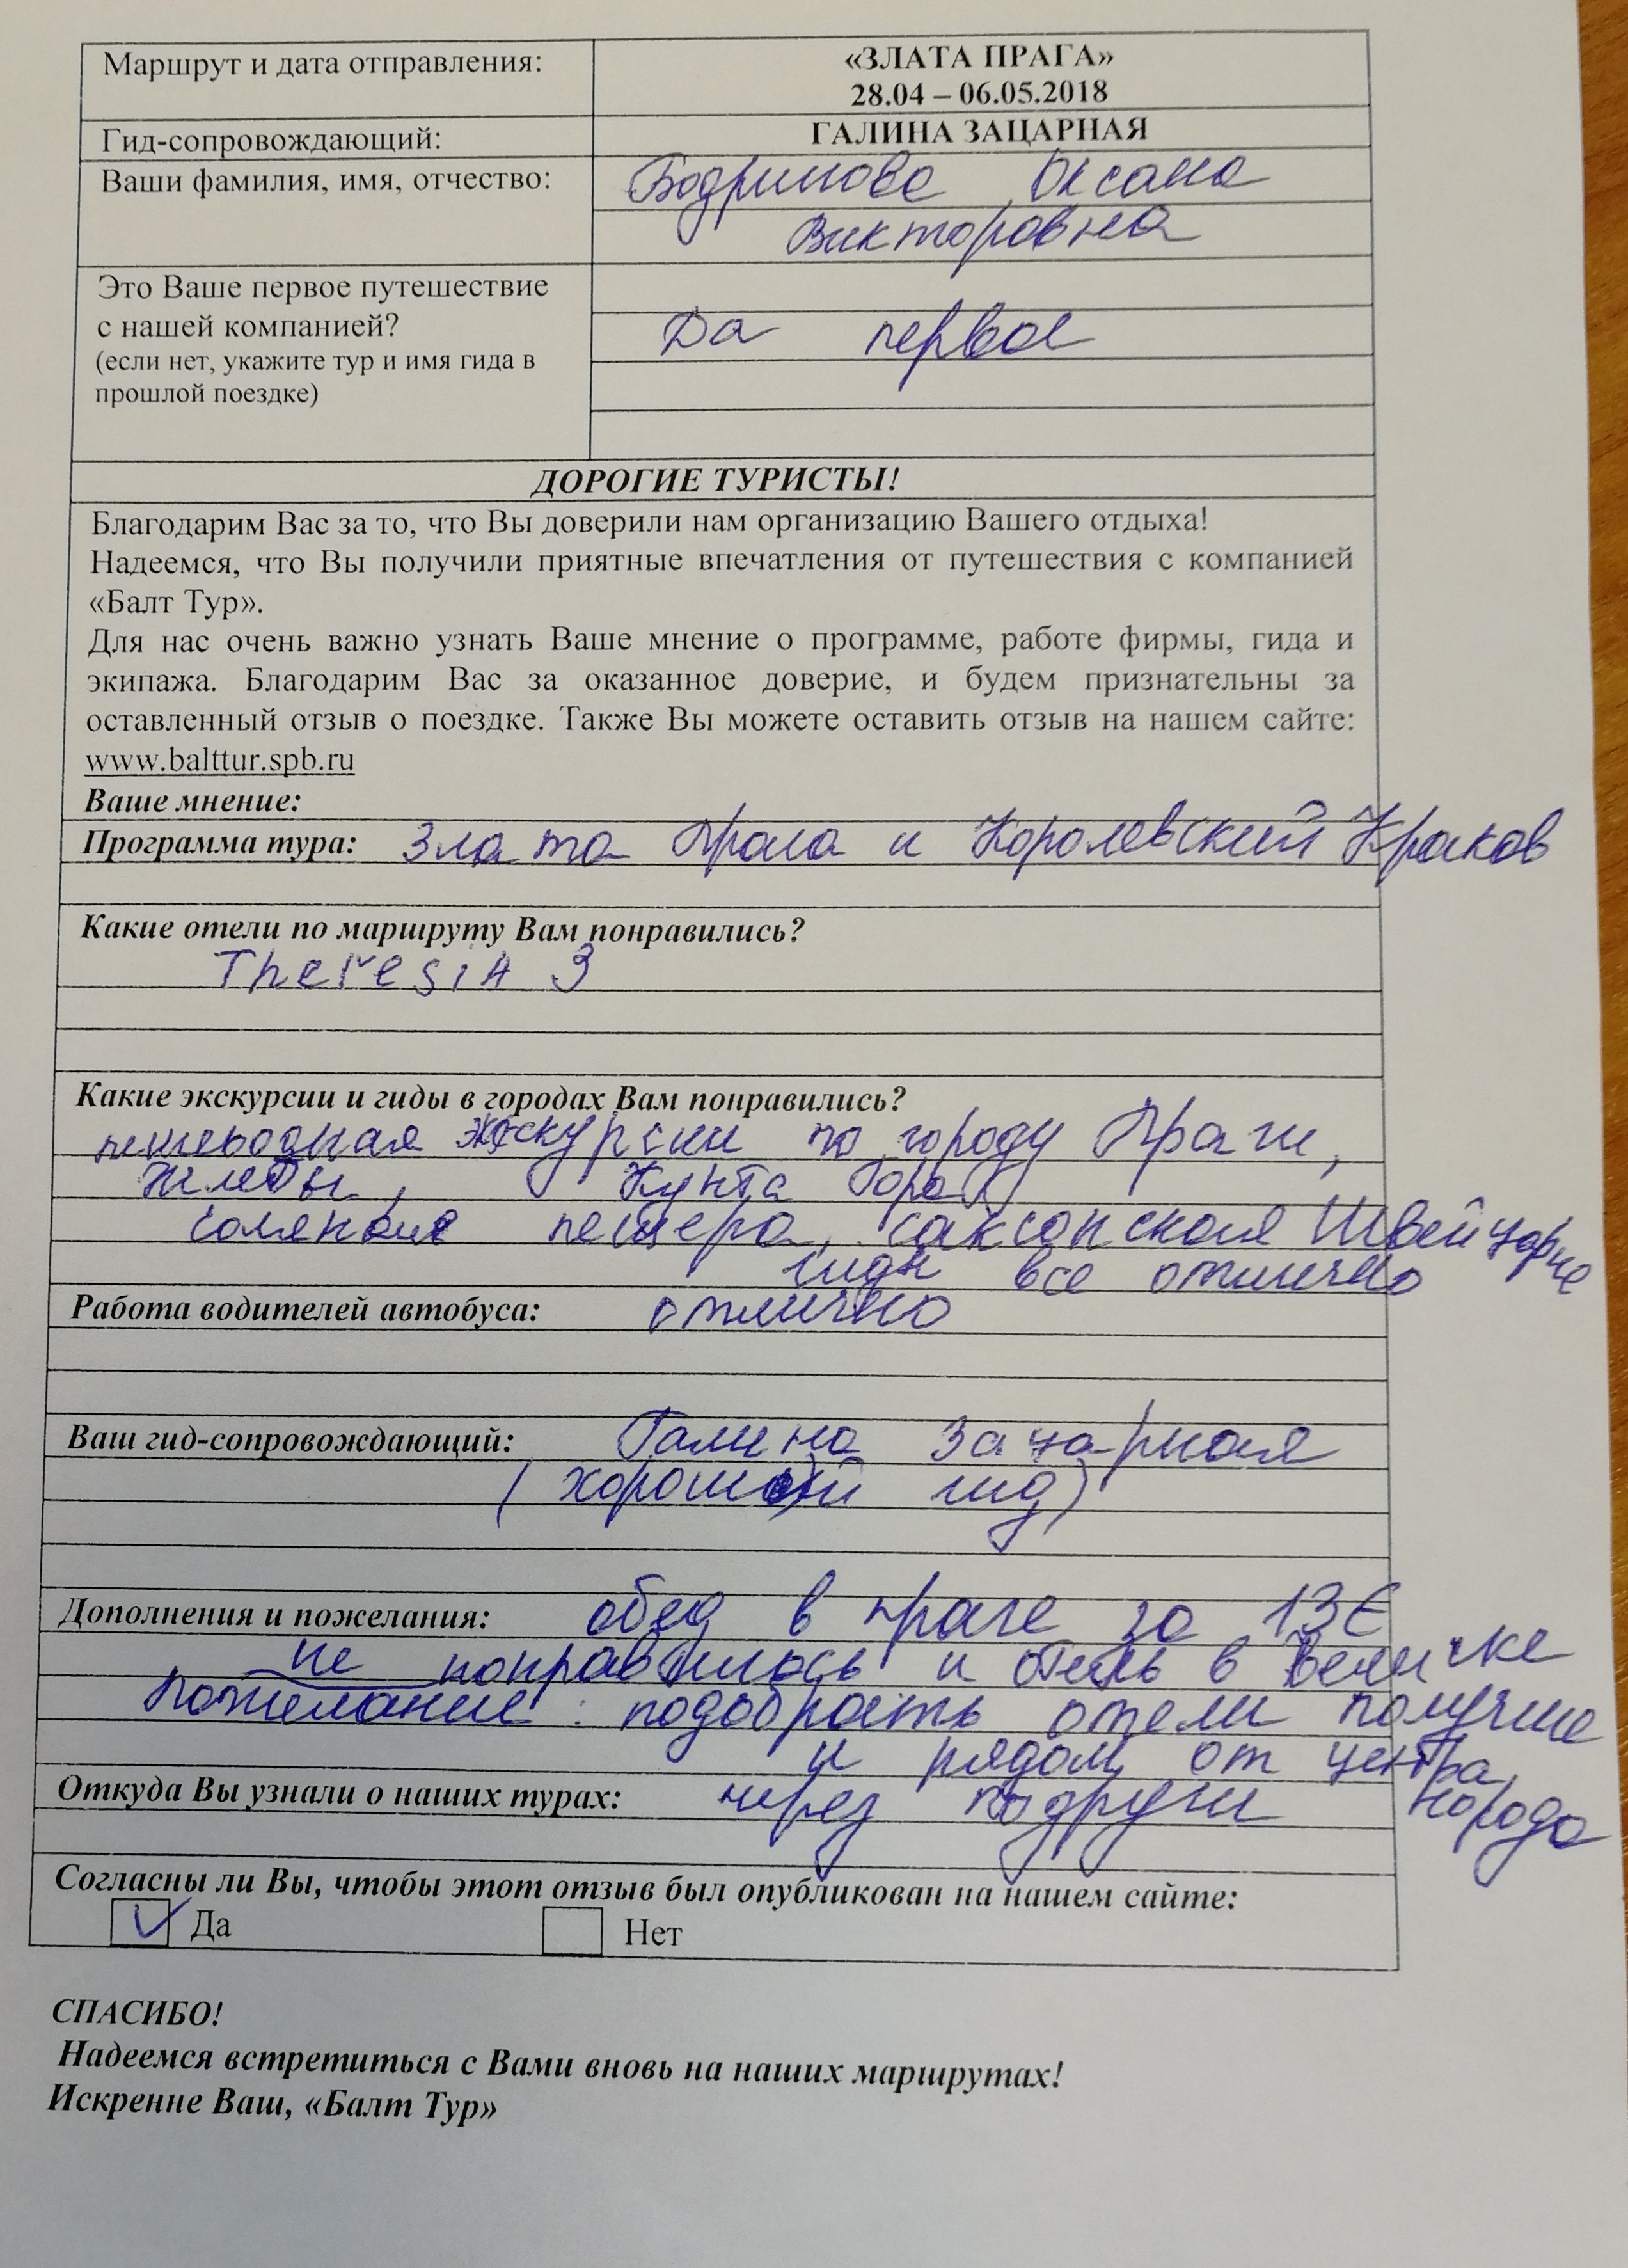 Маршрут и дата отправления:
«ЗЛАТА ПРАГА»
28.04 – 06.05.2018
Гид-сопровождающий:
ГАЛИНА ЗАЦАРНАЯ
Ваши фамилия, имя, отчество:
Оксана
Викторовна
Это Ваше первое путешествие
с нашей компанией?
(если нет, укажите тур и имя гида в
прошлой поездке)
Да первое
ДОРОГИЕ ТУРИСТЫ!
Благодарим Вас за то, что Вы доверили нам организацию Вашего отдыха!
Надеемся, что Вы получили приятные впечатления от путешествия с компанией
«Балт Тур».
Для нас очень важно узнать Ваше мнение о программе, работе фирмы, гида и
экипажа. Благодарим Вас за оказанное доверие, и будем признательны за
оставленный отзыв о поездке. Также Вы можете оставить отзыв на нашем сайте:
www.balttur.spb.ru
Ваше мнение:
Программа тура: Злата Прага и Королевский Краков
Какие отели по маршруту Вам понравились?
TheresiA 3
Какие экскурсии и гиды в городах Вам понравились?
экскурсии по городу Праги,
Жлебы, Кунта Гора
пещера, саксонская Швейцария
гиды все отлично
Работа водителей автобуса: отлично
Ваш гид-сопровождающий: Галина Зацарная
(хороший гид)
Дополнения и пожелания: обед в праге за 13€
не понравилось и отель в Величке
пожелание: подобрать отели получше
и рядом от центра
города
Откуда Вы узнали о наших турах: через подруги
Согласны ли Вы, чтобы этот отзыв был опубликован на нашем сайте:
Да Нет
СПАСИБО!
Надеемся встретиться с Вами вновь на наших маршрутах!
Искренне Ваш, «Балт Тур»